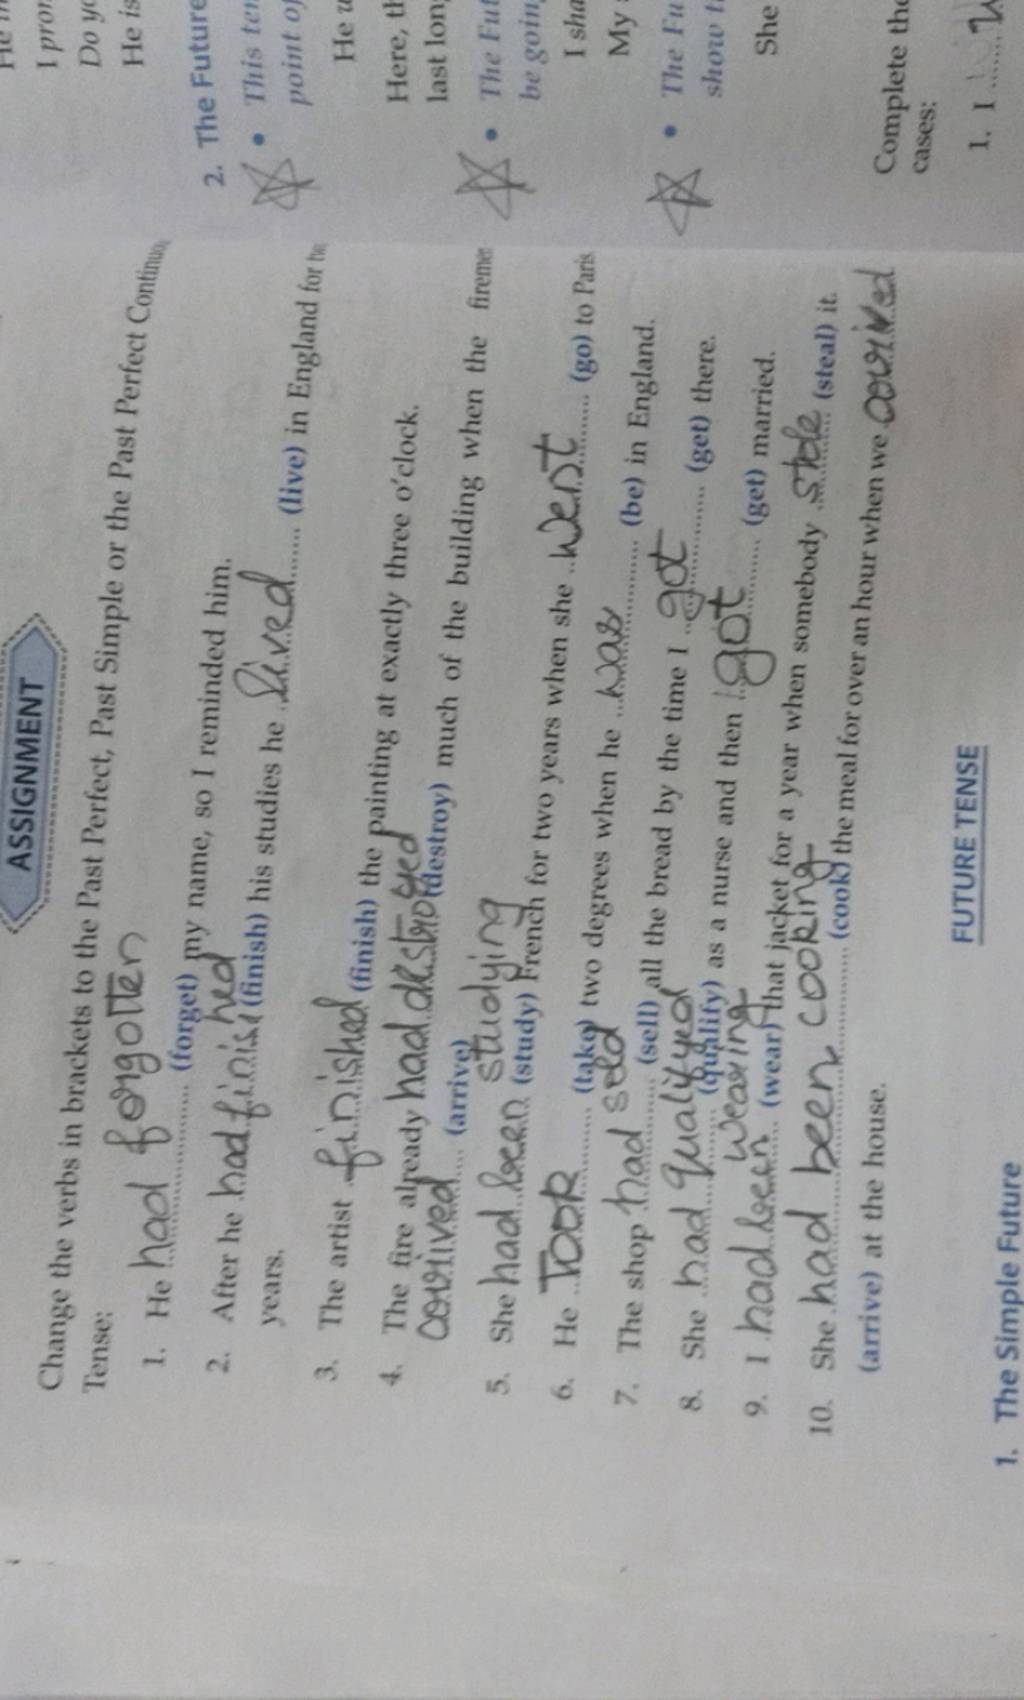 ASSIGNMENT
Change the verbs in brackets to the Past Perfect, Past Simple or the Past Perfect
Tense:
1. He had forgotten (forget) my name, so I reminded him.
2. After he had finished (finish) his studies he lived (live) in England for
years.
3. The artist finished (finish) the painting at exactly three o'clock.
4. The fire already had destroyed (destroy) much of the building when the
arrived (arrive)
5. She had been studying (study) French for two years when she went (go) to Paris
6. He Took (take) two degrees when he was (be) in England.
7. The shop had sold (sell) all the bread by the time I got (get) there.
8. She had qualifyed (qualify) as a nurse and then got (get) married.
9. I had been wearing (wear) that jacket for a year when somebody stole (steal) it.
10. She had been cooking (cook) the meal for over an hour when we arrived
(arrive) at the house.
FUTURE TENSE
1. The Simple Future
I
Do
He is
2. The Future
• This
point of
He
Here,
last
• The
be
I
My
• The
show
She
Complete the
cases:
1. I